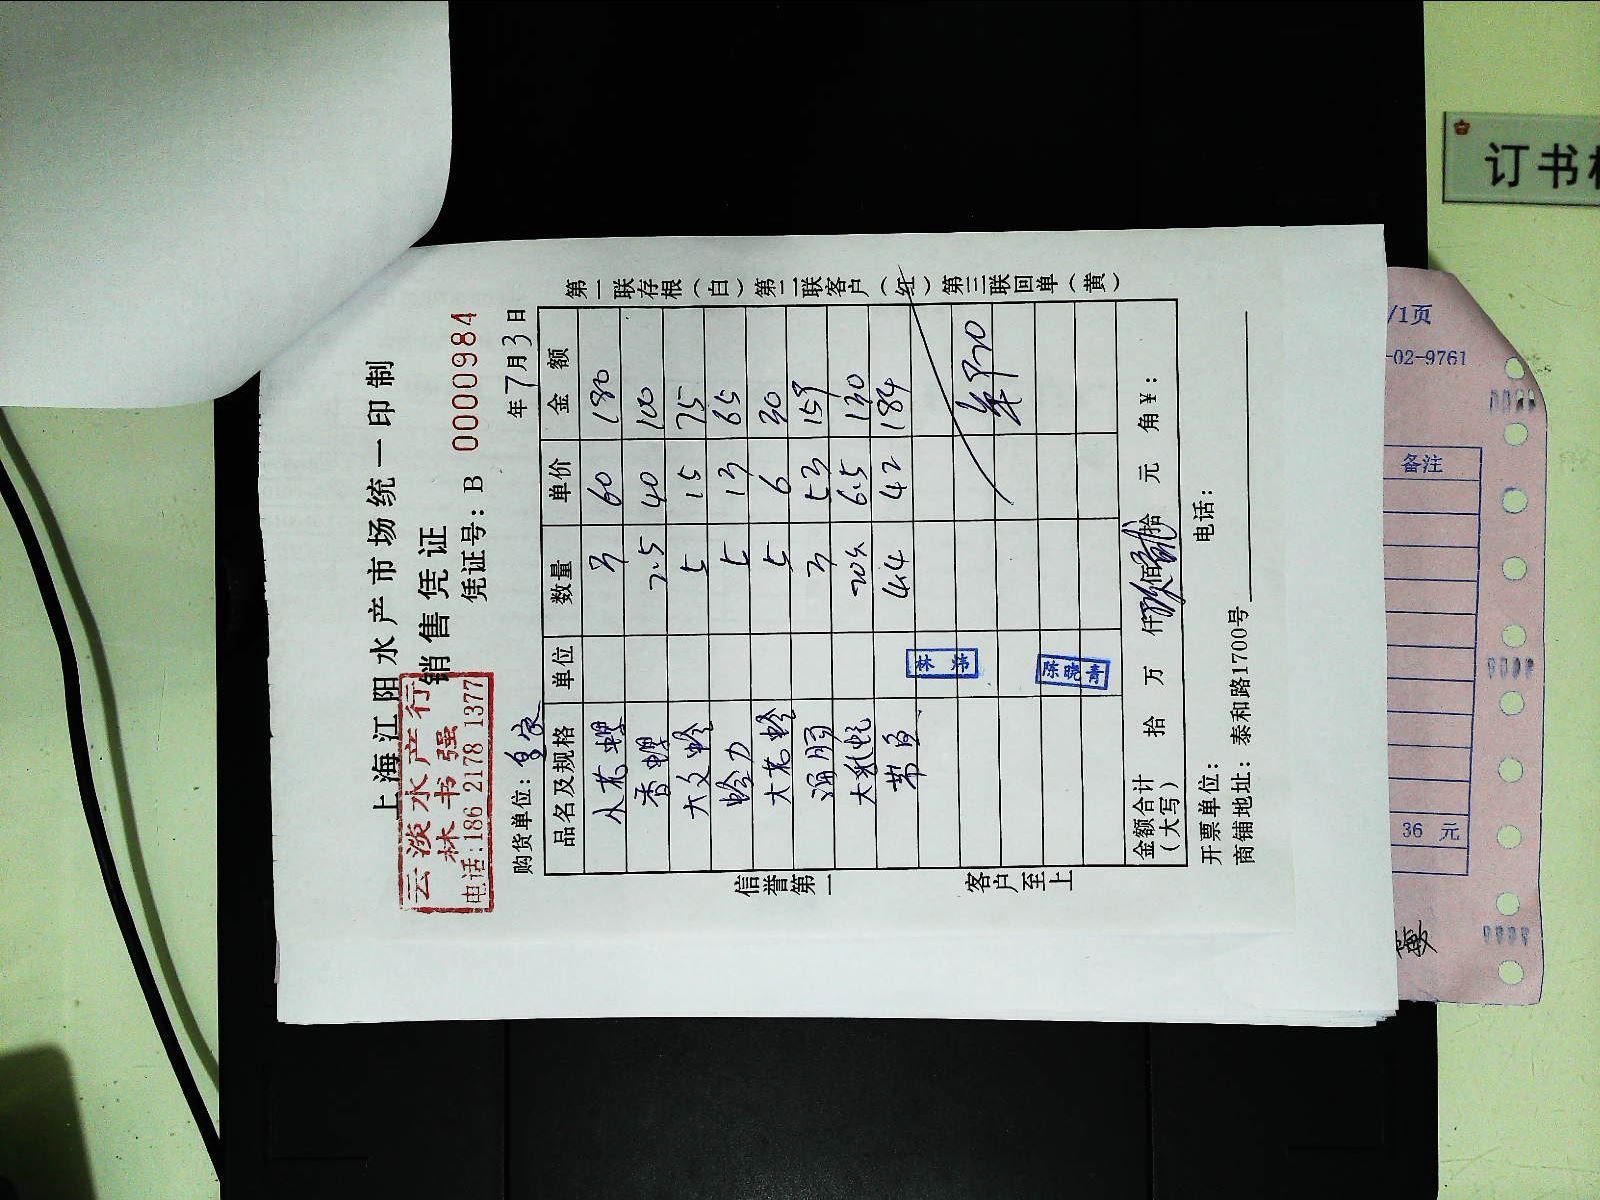 上海江阳水产市场统一印制
销售凭证
云淡水产行
林书强
电话:186 2178 1377
凭证号: B 0000984
购货单位:
年7月3日
品名及规格 单位 数量 单价 金额
小花螺 3 60 180
香螺 2.5 40 100
大文蛤 5 15 75
5 13 65
大花蛤 5 6 30
3 53 159
20 6.5 130
4.4 42 184
林炜
陈晓青
金额合计
(大写) 拾 万 仟 佰 拾 元 角 ¥:
开票单位: 电话:
商铺地址: 泰和路1700号
信誉第一 客户至上
第一联存根(白) 第二联客户(红) 第三联回单(黄)
订书
/1页
-02-9761
备注
36 元